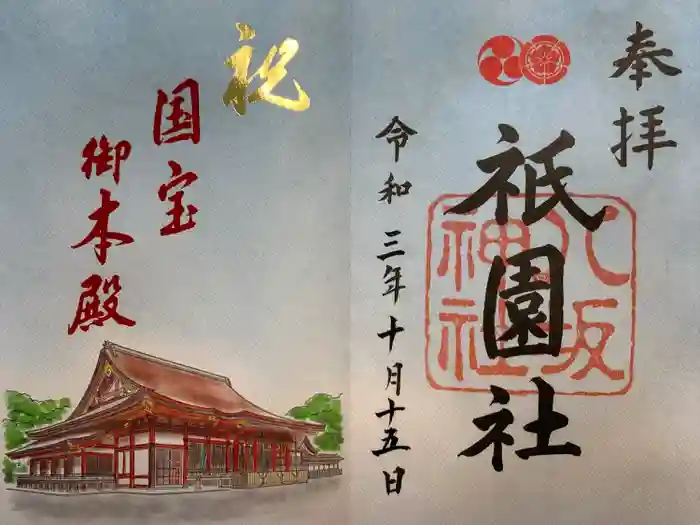 奉拝
八坂神社
祇園社
令和三年十月十五日
祝
国宝
御本殿